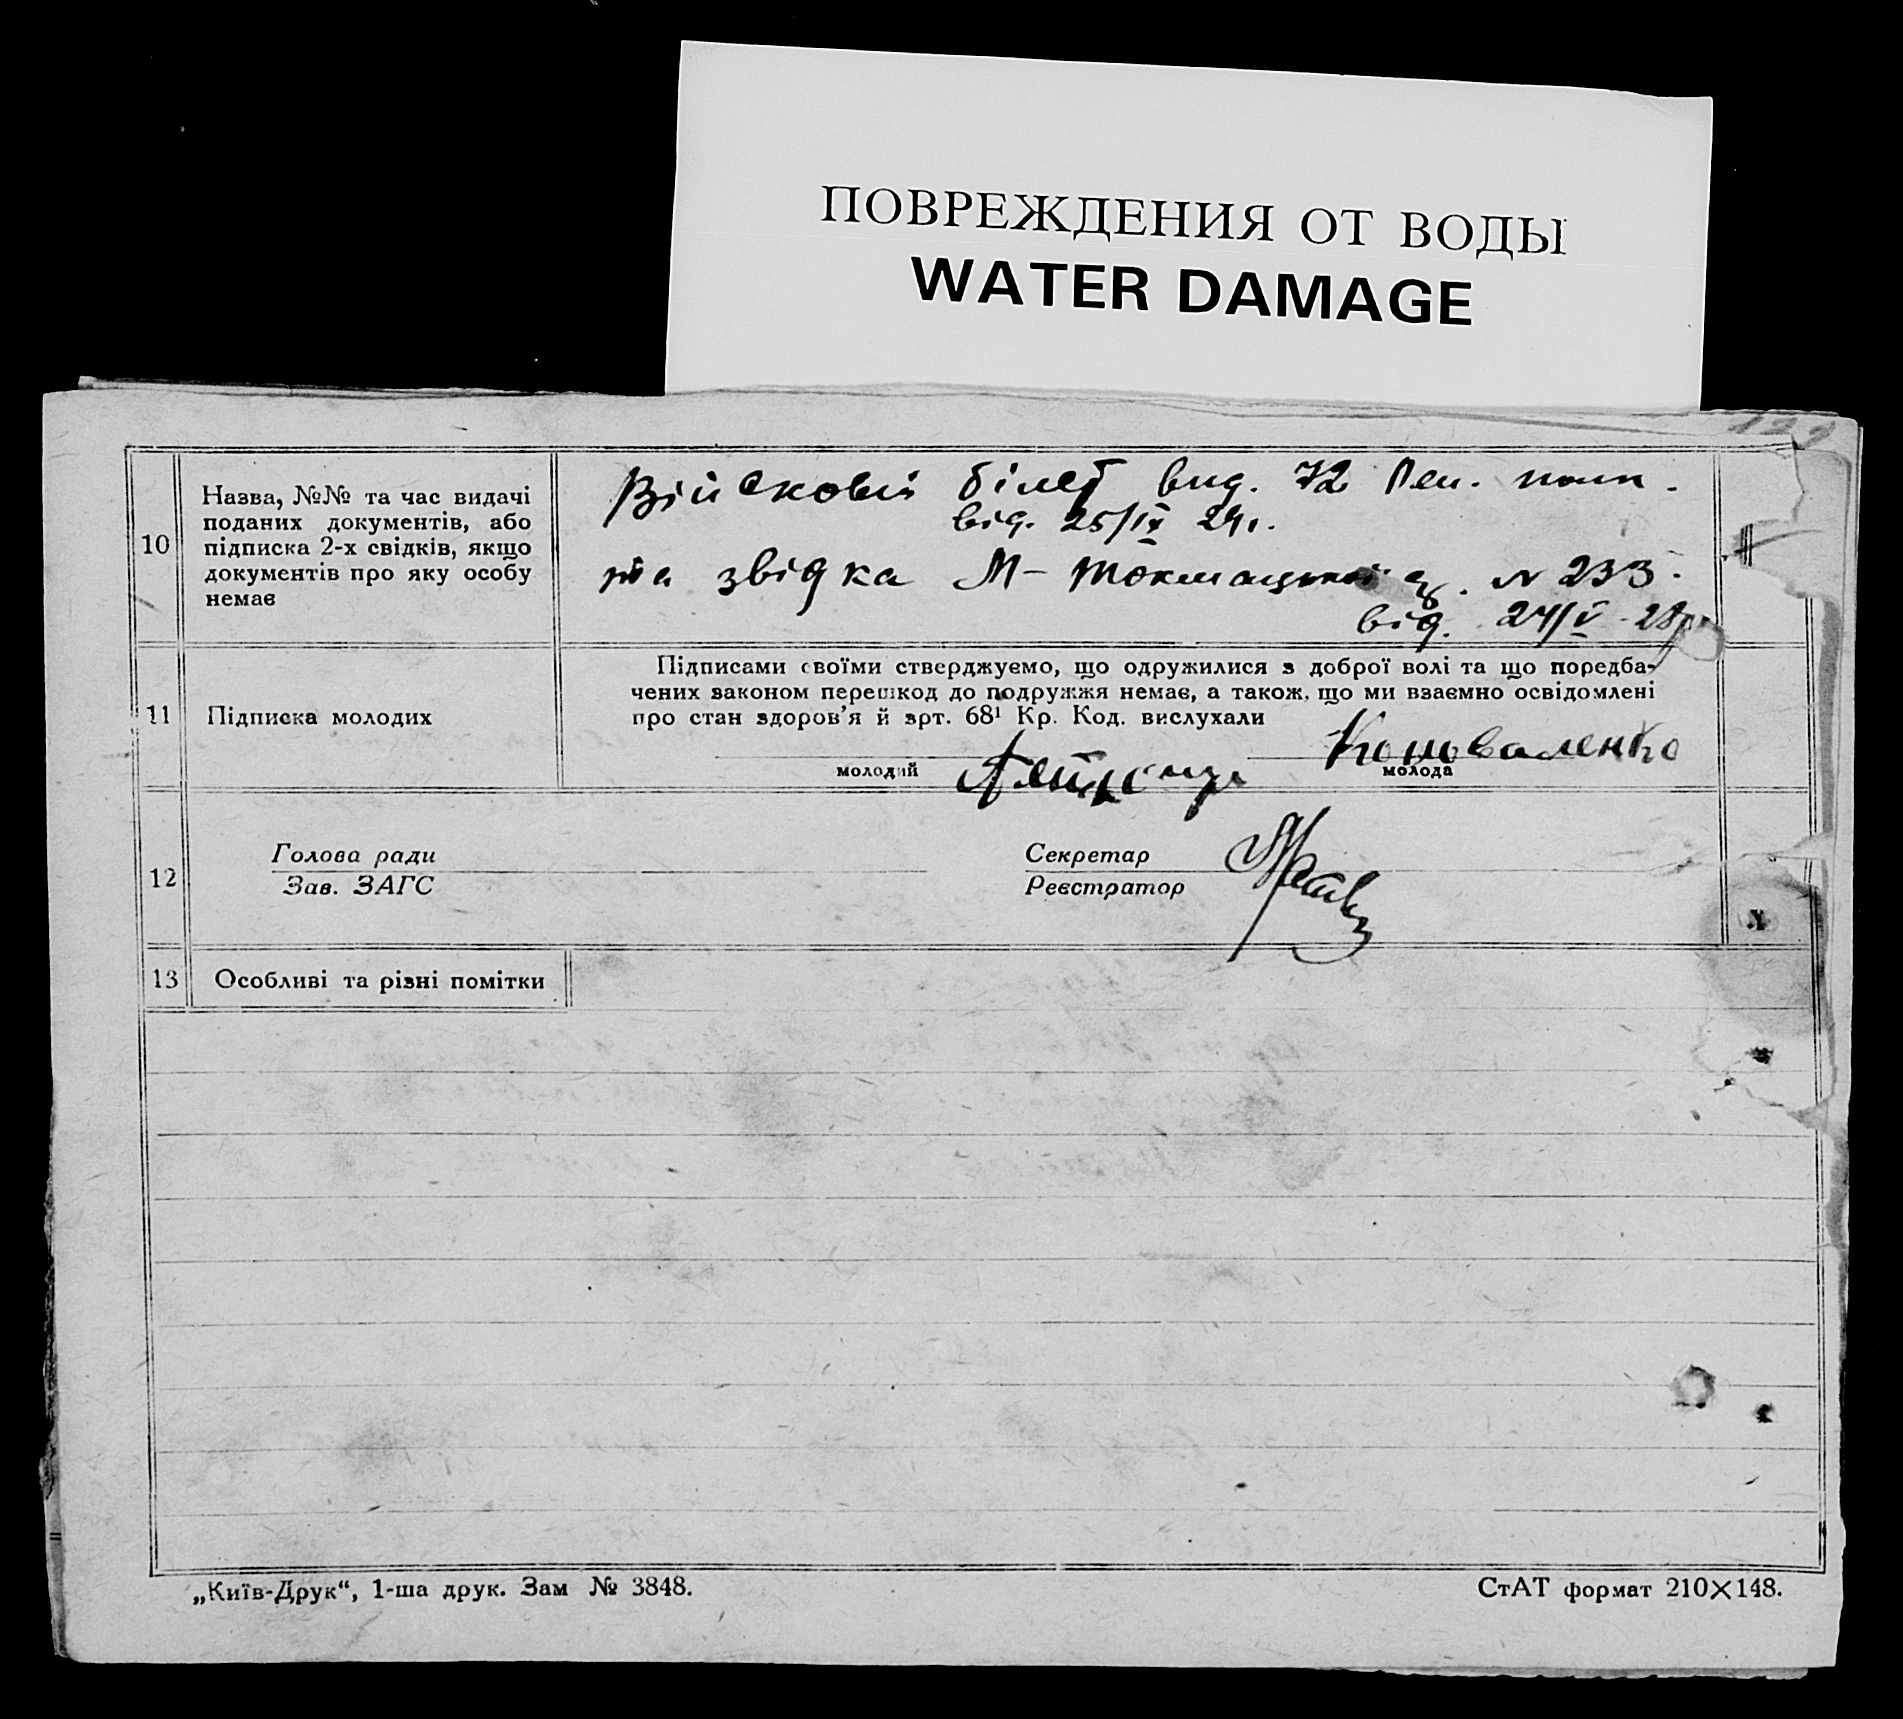 ПОВРЕЖДЕНИЯ ОТ ВОДЫ
WATER DAMAGE
129
10
Назва, №№ та час видачі
поданих документів, або
підписка 2-х свідків, якщо
документів про яку особу
немає
Військовий білет вид. 72
від. 25/IX
та звідка М-Токмацької № 233.
від. 24/V 28р
11
Підписка молодих
Підписами своїми стверджуємо, що одружилися з доброї волі та що поредба-
чених законом перешкод до подружжя немає, а також, що ми взаємно освідомлені
про стан здоров'я й зрт. 68¹ Кр. Код. вислухали
Коноваленко
молодий
молода
12
Голова ради
Зав. ЗАГС
Секретар
Реєстратор
13
Особливі та різні помітки
„Київ-Друк“, 1-ша друк. Зам № 3848.
СтАТ формат 210×148.